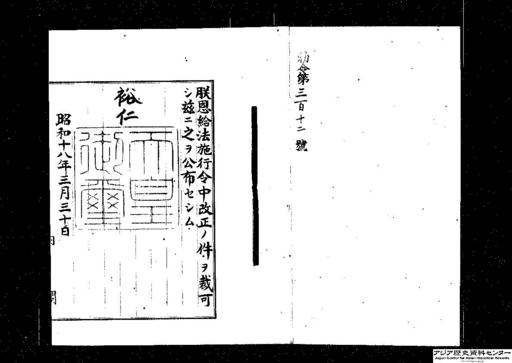 勅令第三百十二號
朕恩給法施行令中改正ノ件ヲ裁可
シ茲ニ之ヲ公布セシム
裕仁
天皇御璽
昭和十八年三月三十日
内閣
アジア歴史資料センター
Japan Center for Asian Historical Records